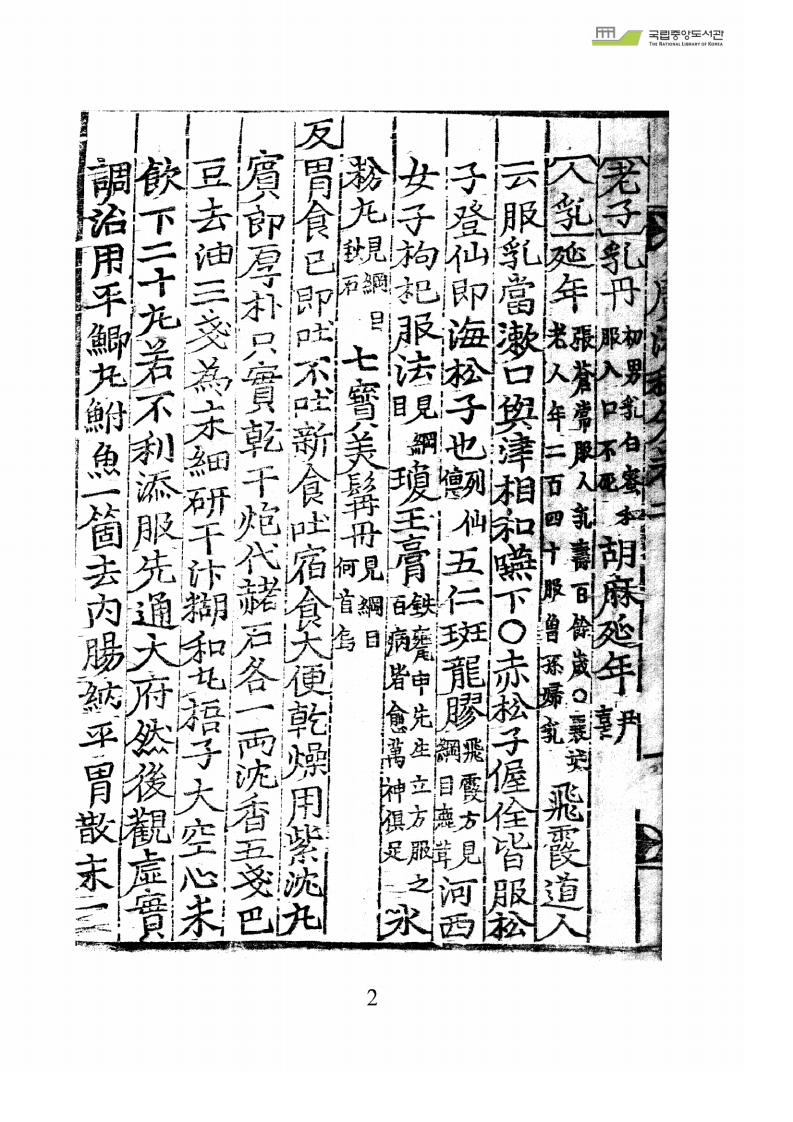 국립중앙도서관
THE NATIONAL LIBRARY OF KOREA
老子乳丹初男乳白蜜服入口不死胡麻延年
人乳延年張蒼常服人乳壽百餘歲○老人年二百四十服曾孫婦乳飛霞道人
云服乳當漱口與津相和嚥下○赤松子偓佺皆服松
子登仙即海松子也列仙傳五仁斑龍膠飛霞方見綱目鹿茸河西
女子枸杞服法見綱目瓊玉膏鉄甕申先生立方服之百病皆愈萬神俱足氷
䊵丸見綱目秋石七寶美髯丹見綱目何首烏
反胃食已即吐不吐新食吐宿食大便乾燥用紫沈丸
賓郎厚朴只實乾干炮代赭石各一兩沈香五戔巴
豆去油三戔為末細研干汴糊和丸梧子大空心米
飲下二十丸若不利添服先通大府然後觀虛實
調治用平鯽丸鮒魚一箇去內腸納平胃散末二
2